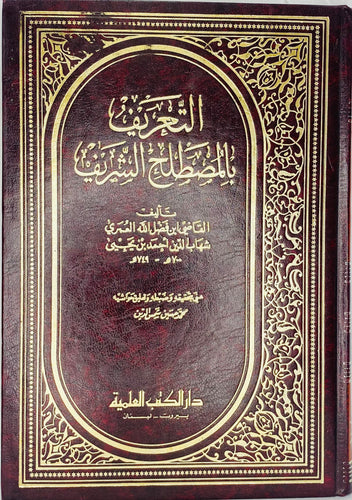 التعريف
بالمصطلح الشريف
تأليف
القاضي ابن فضل الله العمري
شهاب الدين أحمد بن يحيى
٧٠٠هـ - ٧٤٩هـ
عني بتحقيقه وضبطه وتعليق حواشيه
محمد حسين شمس الدين
دار الكتب العلمية
بيروت - لبنان